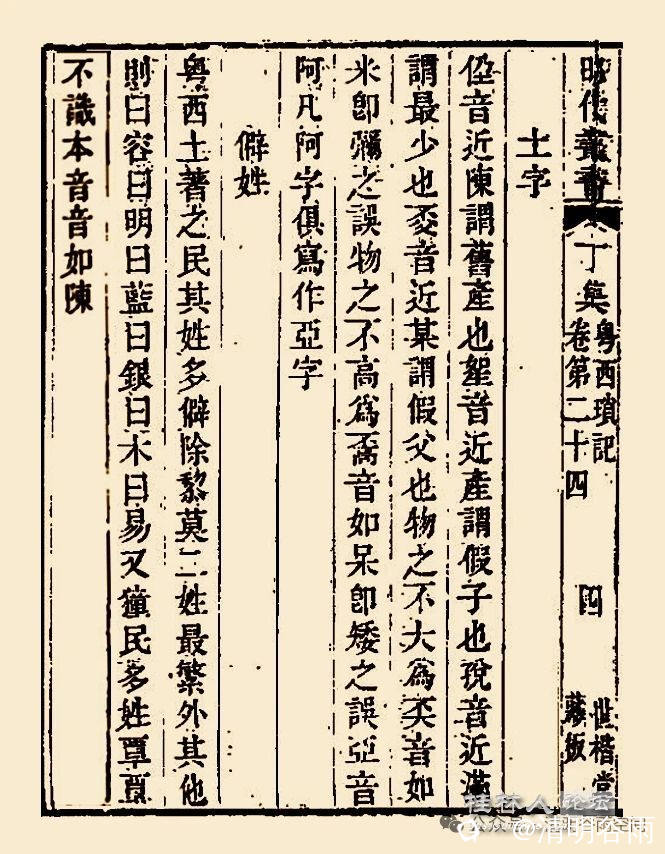 昭代叢書 丁集 粵西瑣記 卷第二十四 四 世楷堂 藏板
土字
音近陳謂舊產也 音近產謂假子也 音近滿
謂最少也 音近某謂假父也物之不大為奀音如
米即彌之誤物之不高為 音如呆即矮之誤亞音
阿凡阿字俱寫作亞字
僻姓
粵西土著之民其姓多僻除黎莫二姓最繁外其他
則曰容曰明曰藍曰銀曰木曰易又獞民多姓覃覃
不識本音音如陳
桂林人论坛
公众号
@清明谷雨